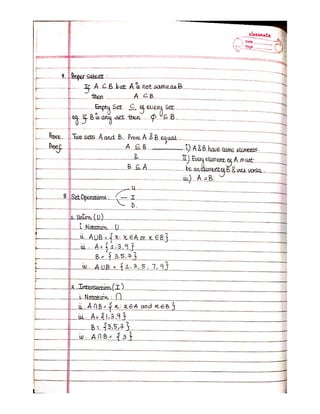 classmate
Date
Page
7. Proper Subset :
If A ⊆ B but A is not same as B
then A ⊂ B
Empty Set ⊆ of every Set
eg. If B is any set then φ ⊆ B.
Prove. Two sets A and B. Prove A & B equal.
Proof A ⊆ B i) A & B have same elements
& ii) Every element of A must
B ⊆ A be an element of B & vice versa.
iii) A = B
U
8. Set Operations : I
D.
1. Union (U)
i. Notation U
ii. A∪B = { x: x ∈ A or x ∈ B }
iii. A = { 1, 3, 9 }
B = { 3, 5, 7 }
iv. A∪B = { 1, 3, 5, 7, 9 }
2. Intersection (I)
i. Notation : ∩
ii. A∩B = { x: x ∈ A and x ∈ B }
iii. A = { 1, 3, 9 }
B = { 3, 5, 7 }
iv. A∩B = { 3 }